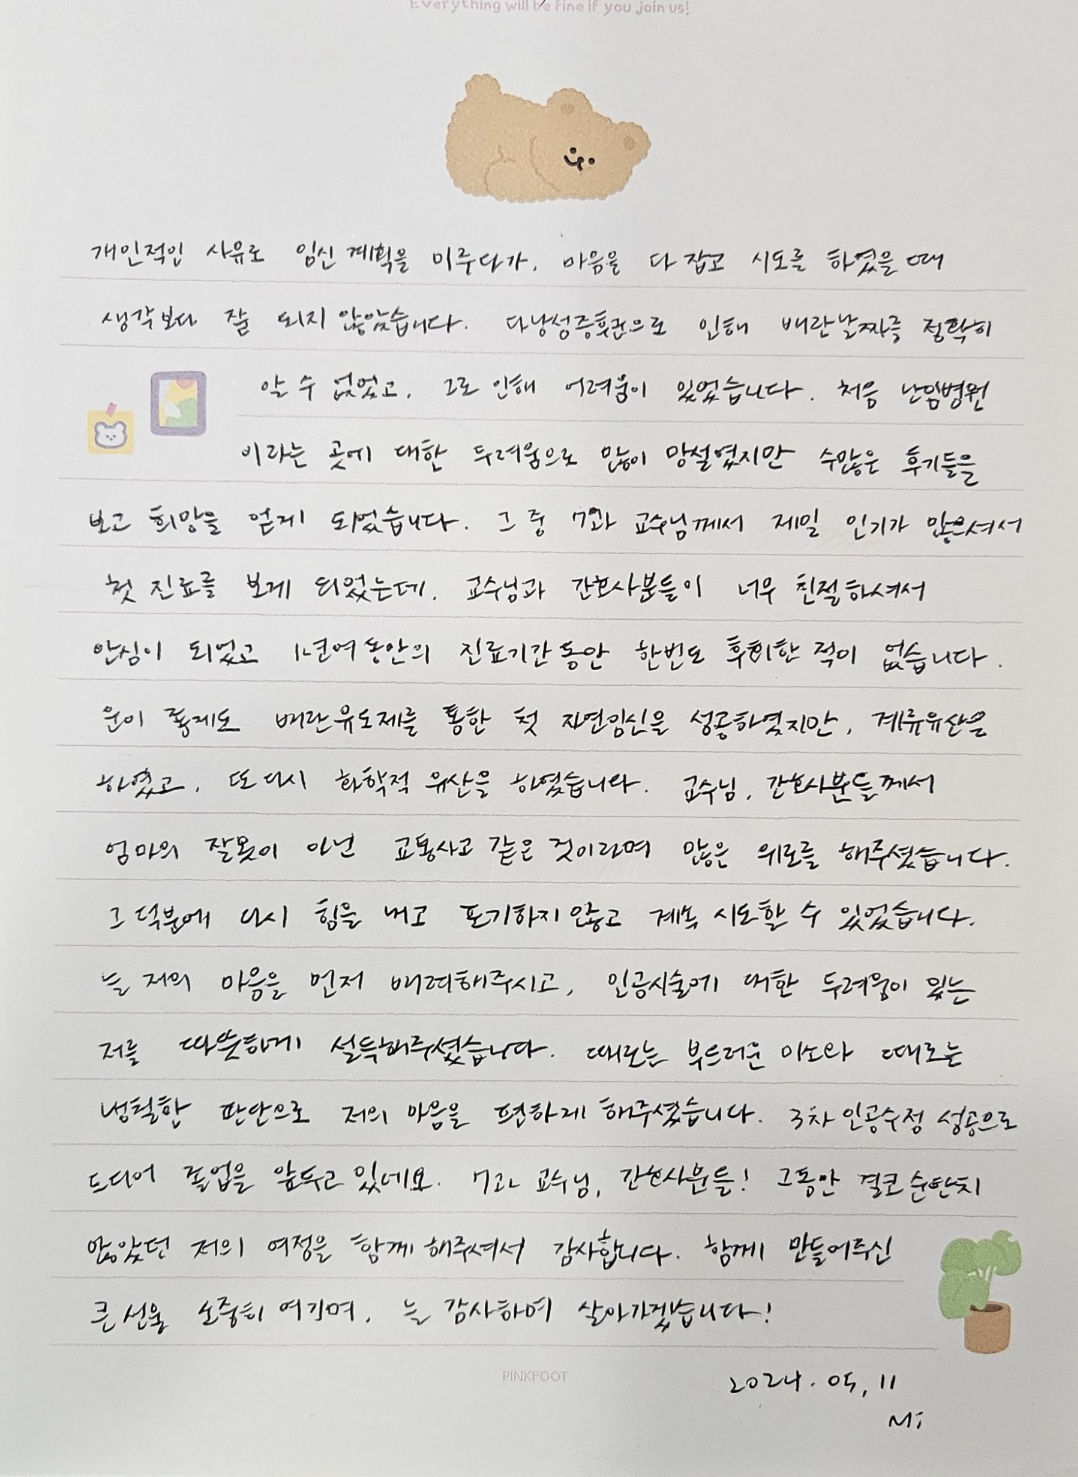 Everything will be Fine if you join us!
개인적인 사유로 임신 계획을 미루다가, 마음을 다 잡고 시도를 하였을 때
생각보다 잘 되지 않았습니다. 다낭성증후군으로 인해 배란날짜를 정확히
알 수 없었고, 그로 인해 어려움이 있었습니다. 처음 난임병원
이라는 곳에 대한 두려움으로 많이 망설였지만 수많은 후기들을
보고 희망을 얻게 되었습니다. 그 중 7과 교수님께서 제일 인기가 많으셔서
첫 진료를 보게 되었는데, 교수님과 간호사분들이 너무 친절하셔서
안심이 되었고 1년여 동안의 진료기간 동안 한번도 후회한 적이 없습니다.
운이 좋게도 배란유도제를 통한 첫 자연임신을 성공하였지만, 계류유산을
하였고, 또 다시 화학적 유산을 하였습니다. 교수님, 간호사분들께서
엄마의 잘못이 아닌 교통사고 같은 것이라며 많은 위로를 해주셨습니다.
그 덕분에 다시 힘을 내고 포기하지 않고 계속 시도할 수 있었습니다.
늘 저의 마음을 먼저 배려해주시고, 인공시술에 대한 두려움이 있는
저를 따뜻하게 설득해주셨습니다. 때로는 부드러운 미소와 때로는
냉철한 판단으로 저의 마음을 편하게 해주셨습니다. 3차 인공수정 성공으로
드디어 졸업을 앞두고 있네요. 7과 교수님, 간호사분들! 그동안 결코 순탄치
않았던 저의 여정을 함께 해주셔서 감사합니다. 함께 만들어주신
큰 선물 소중히 여기며, 늘 감사하며 살아가겠습니다!
PINKFOOT
2024. 05. 11
Mi